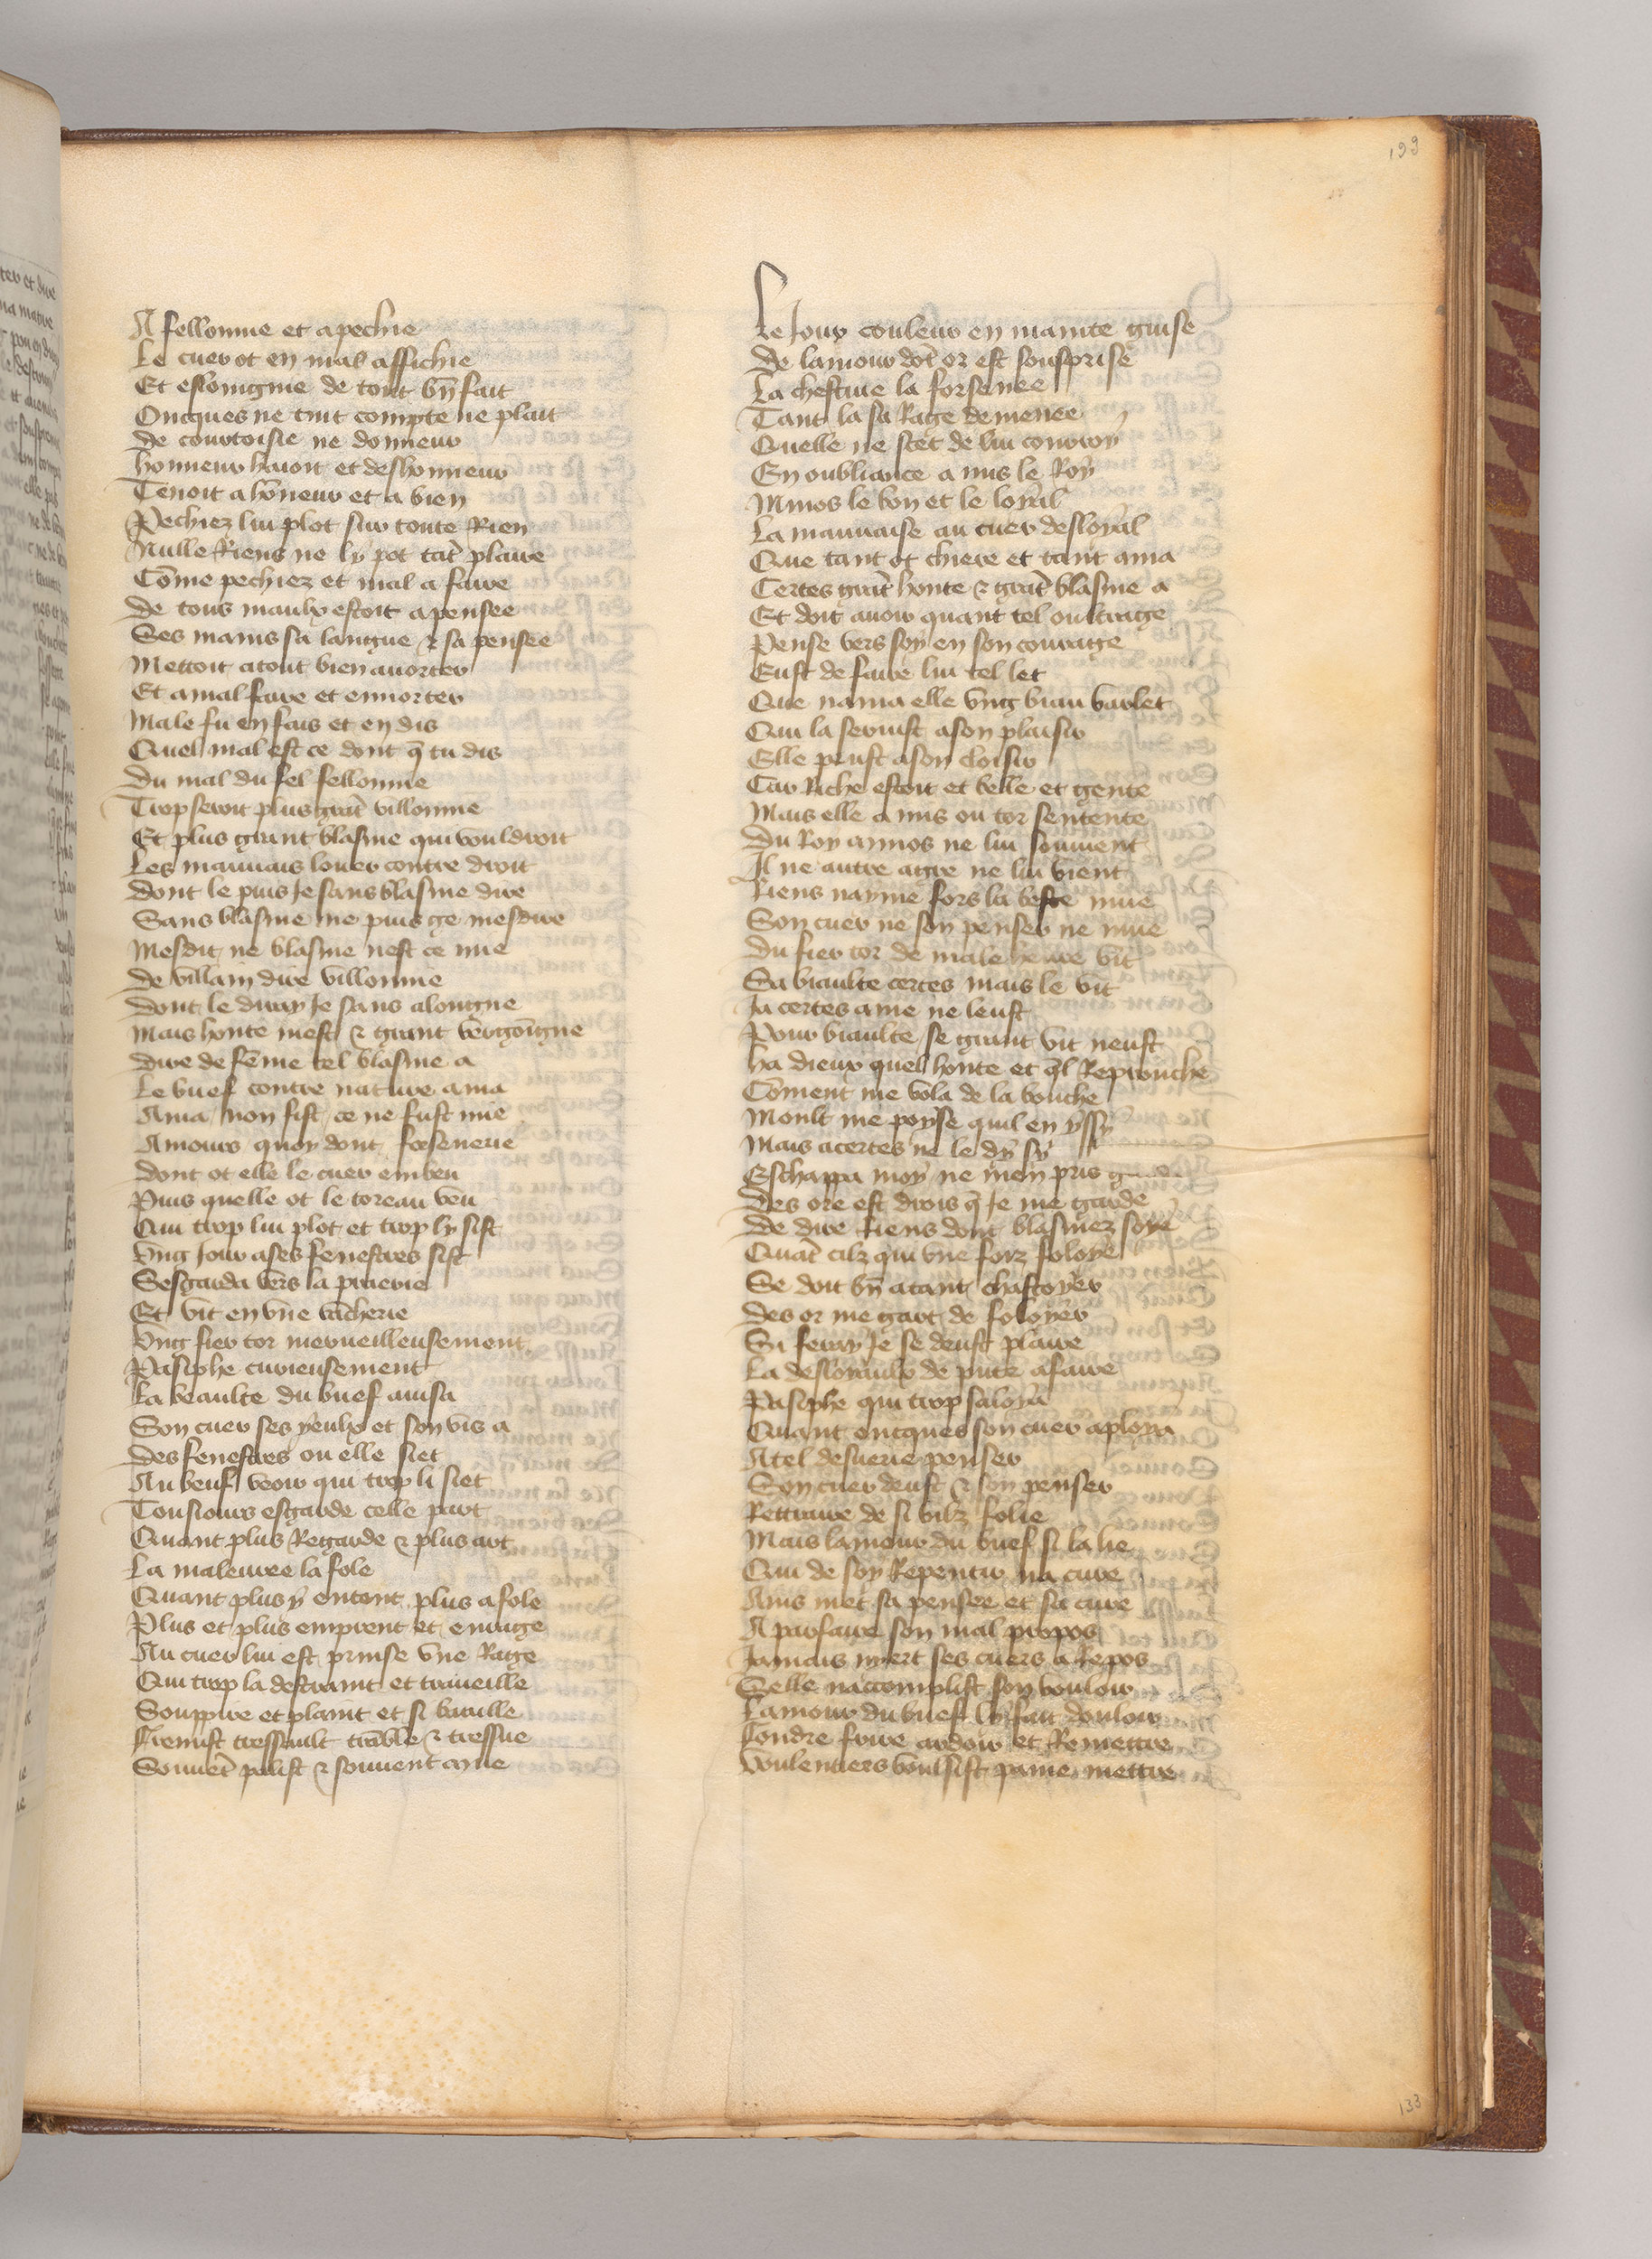 199
A fellonnie et a pechie
Le cuer ot en mal affichie
Et esloingnie de tout bñ fait
Oncques ne tint compte ne plait
De courtoisie ne donneur
Honneur havoit et deshonneur
Tenoit a hõneur et a bien
Pechiez lui plot sur toute Rien
Nulle Riens ne ly pot tãt plaire
Cõme pechiez et mal a faire
De tous maulx estoit apensee
Ses mains sa langue & sa pensee
Mettoit atout bien avorter
Et a mal faire et ennorter
Male fu en fais et en dis
Quel mal est ce dont q̃ tu dis
Du mal du fel fellonnie
Trop seroit plus grãt villonnie
Et plus grant blasme qui vouldroit
Les mauvais louer contre droit
Dont le puis Je sans blasme dire
Sans blasme ne puis ge mesdire
Mesdit ne blasme nest ce mie
De villain dire villonnie
Dont le diray Je sans alongne
Mais honte mest & grant vergõigne
Dire de fẽme tel blasme a
Le buef contre nature ama
Ama non fist ce ne fust mie
Amours quoy dont forsenerie
Dont ot elle le cuer embeu
Puis quelle ot le toreau veu
Qui trop lui plot et trop ly sist
Ung Jour ases fenestres sist
Sesgarda vers la praerie
Et vit en vne vacherie
Ung fier tor merueilleusement
Pasiphe curieusement
La beaulte du buef auisa
Son cuer ses yeulx et son vis a
Des fenestres ou elle siet
Au beuf veoir qui trop li siet
Tousiours esgarde celle part
Quant plus Regarde & plus art
La maleuree la fole
Quant plus y entent plus afole
Plus et plus emprent et enrage
Au cuer lui est prinse vne Rage
Qui trop la destraint et traueille
Souppire et plaint et si baaille
Fremist tressault trãble & tressue
Souuẽt palist & souuent mue
Le Jour couleur en mainte guise
De lamour dõt or est sousprise
La chestiue la forsenee
Tant la sa Rage demenee
Quelle ne scet de lui conroy
En oubliance a mis le Roy
Minos le bon et le loyal
La mauuaise au cuer desloyal
Que tant ot chiere et tant ama
Certes grãt honte & grãt blasme a
Et doit auoir quant tel oultrage
Pense vers soy en son courage
Eust de faire lui tel let
Que nama elle vng biau varlet
Qui la seruist ason plaisir
Elle peust ason cloisir
Car Riche estoit et belle et gente
Mais elle a mis ou tor sentente
Du Roy minos ne lui souuient
Il ne autre agre ne lui vient
Riens nayme fors la beste mue
Son cuer ne son penser ne mue
Du fier tor de male heure vit
Sa biaulte certes mais le vit
Ja certes ame ne leust
Pour biaulte se grant vit neust
Ha dieux quel honte et q̃l Reprouche
Cõment me vola de la bouche
Moult me poyse quil en yssy
Mais acertes ne le dy sy
Eschappa moy ne men pris
Des ore est drois q̃ Je me garde
De dire Riens dont blasmez soye
Quãt cilz qui vne foiz foloye
Se doit bñ atant chastoyer
Des or me gart de foloyer
Si feray Je se deust plaire
La desloyaulx de pute afaire
Pasiphe qui trop saloya
Quant oncques son cuer aploya
Atel desuerie penser
Son cuer deust & son penser
Rettraire de si vilz folie
Mais lamour du buef si la lie
Qui de soy Repentir na cure
Ains met sa pensee et sa cure
A parfaire son mal propos
Jamais nyert ses cuers a Repos
Selle naccomplist son vouloir
Lamour du buef ly fait douloir
Fondre frire ardoir et Remettre
Voulentiers voulsist paine mettre
133